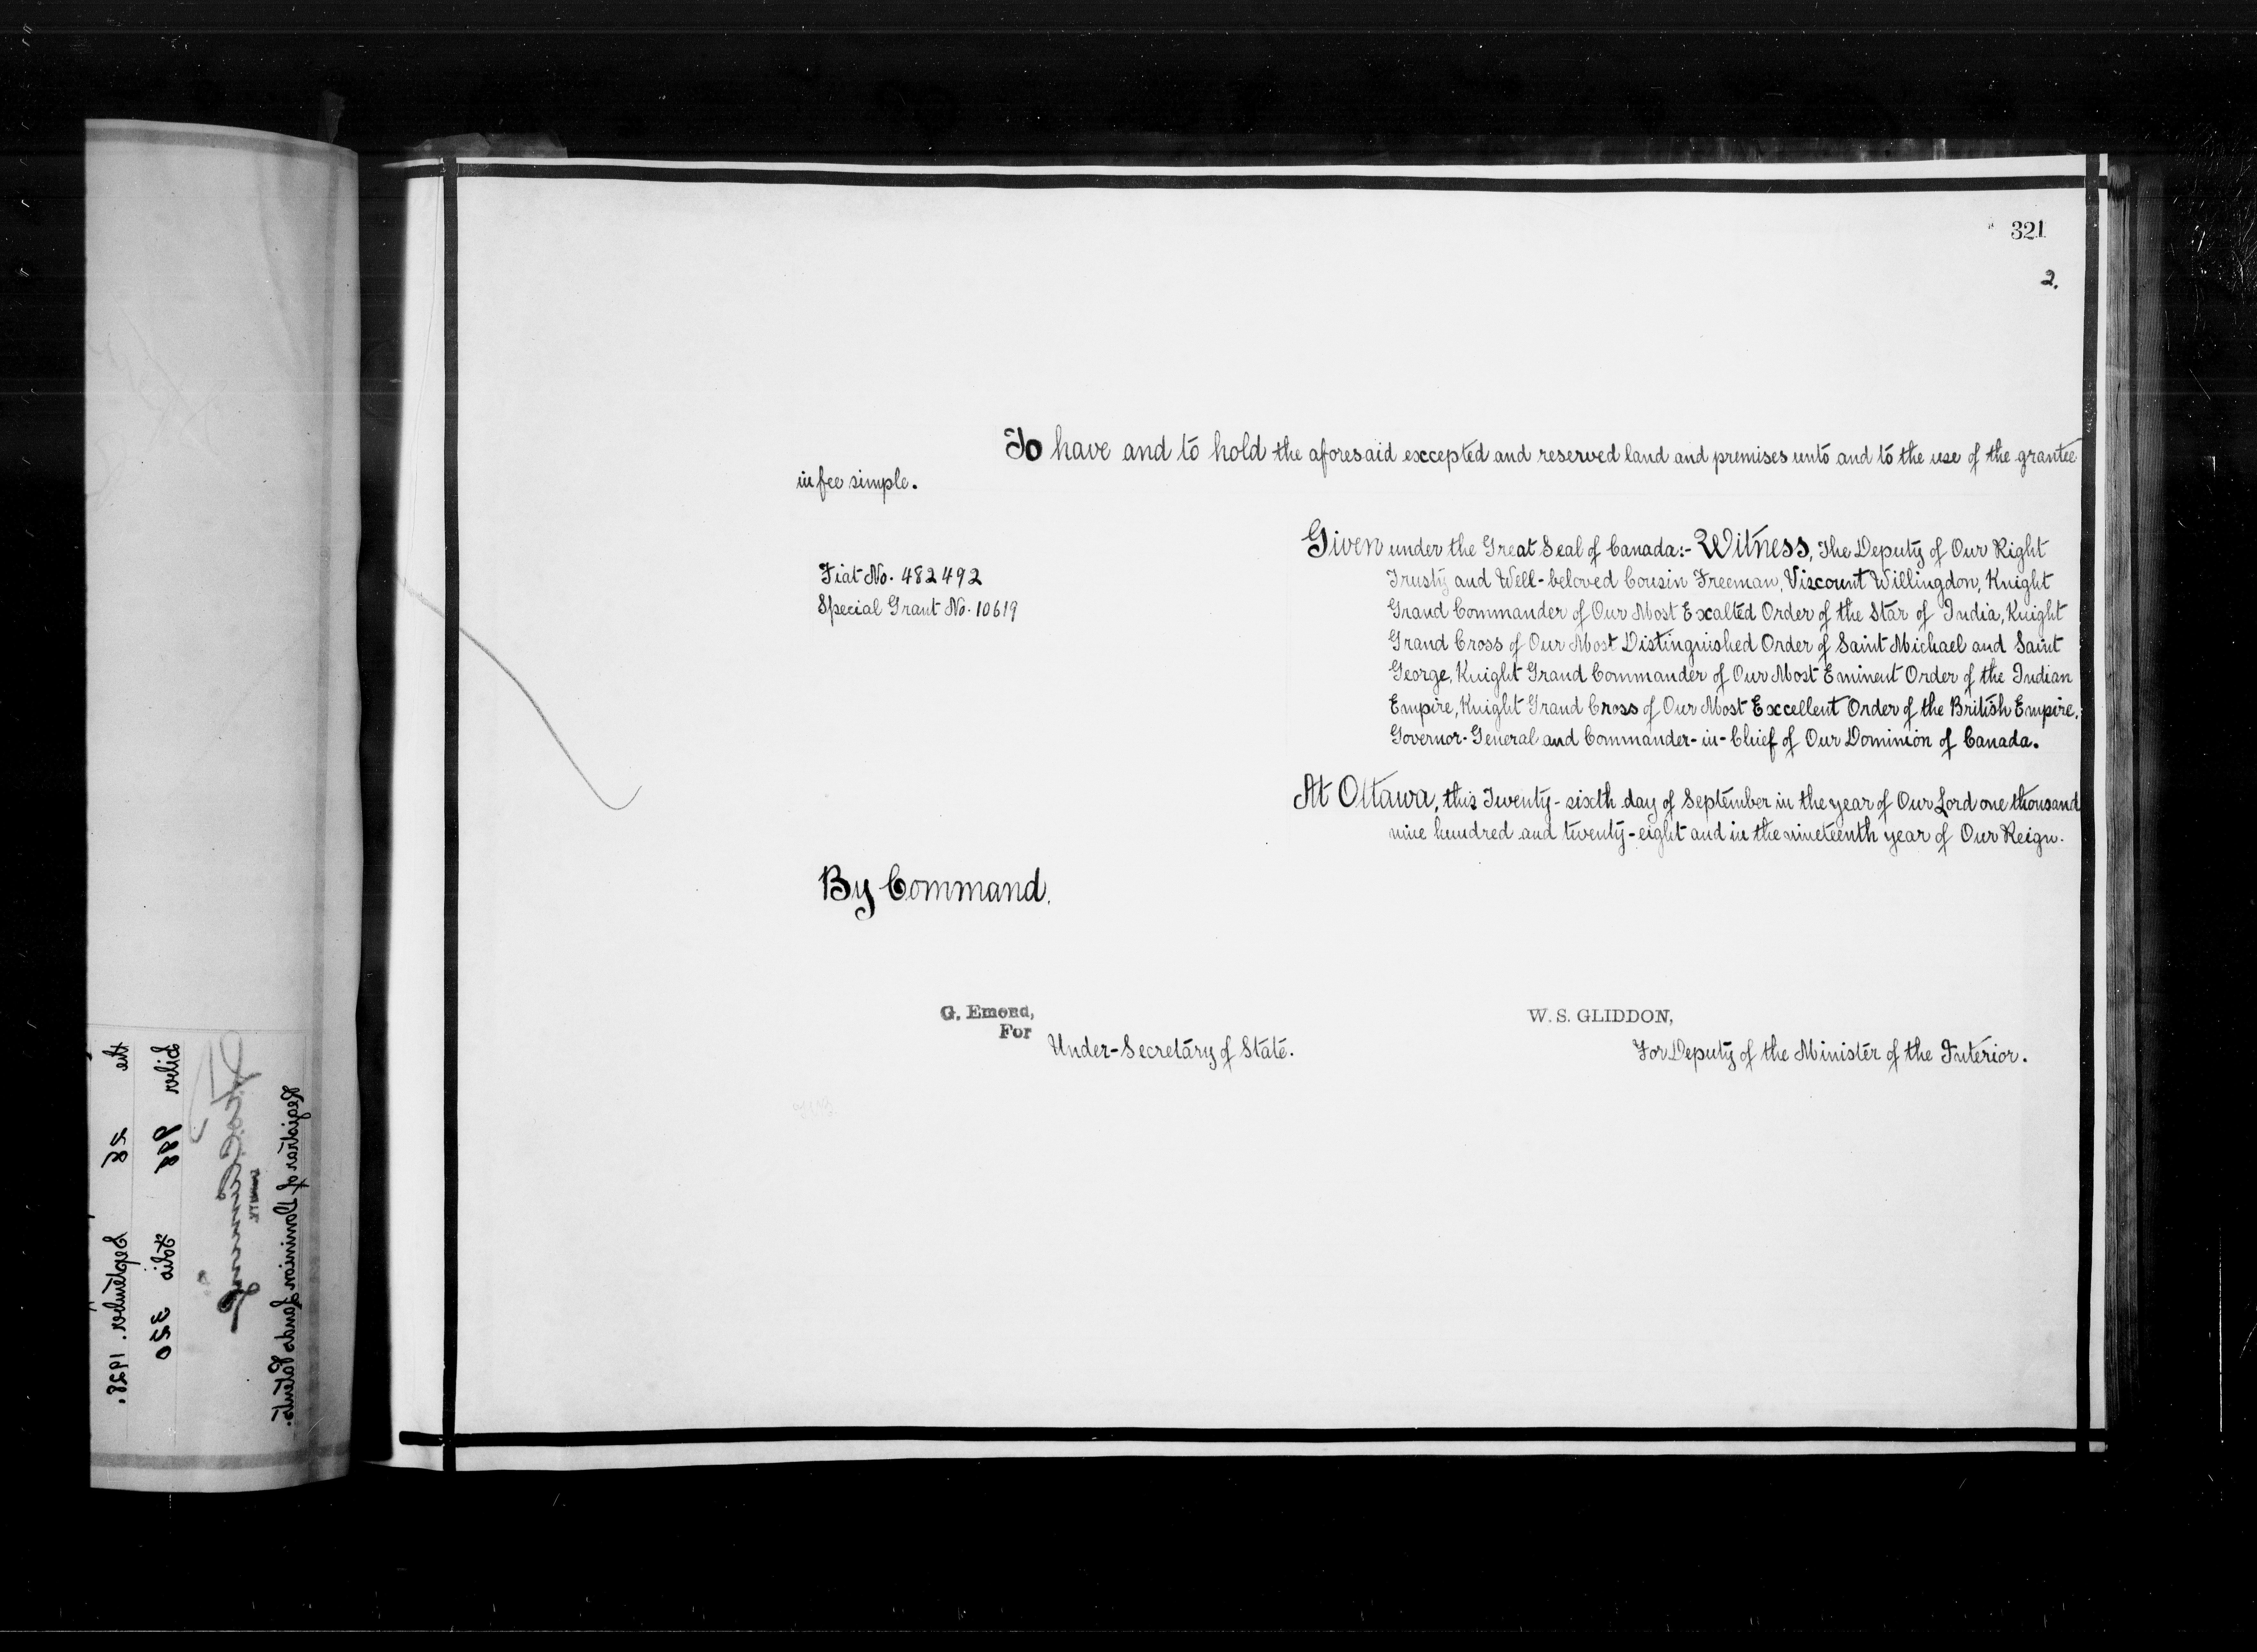 321
2.
To have and to hold the aforesaid excepted and reserved land and premises unto and to the use of the grantee
in fee simple.
Given under the Great Seal of Canada:- Witness, The Deputy of Our Right
Trusty and Well-beloved Cousin Freeman, Viscount Willingdon, Knight
Grand Commander of Our Most Exalted Order of the Star of India, Knight
Grand Cross of Our Most Distinguished Order of Saint Michael and Saint
George, Knight Grand Commander of Our Most Eminent Order of the Indian
Empire, Knight Grand Cross of Our Most Excellent Order of the British Empire,
Governor-General and Commander-in-Chief of Our Dominion of Canada.
Fiat No. 482492
Special Grant No. 10619
At Ottawa, this Twenty-sixth day of September in the year of Our Lord one thousand
nine hundred and twenty-eight and in the nineteenth year of Our Reign.
By Command,
G. Emond,
For
Under-Secretary of State.
W. S. GLIDDON,
For Deputy of the Minister of the Interior.
the 28 September. 1928.
Liber 998 Folio 320
Registrar of Dominion Lands Patents.